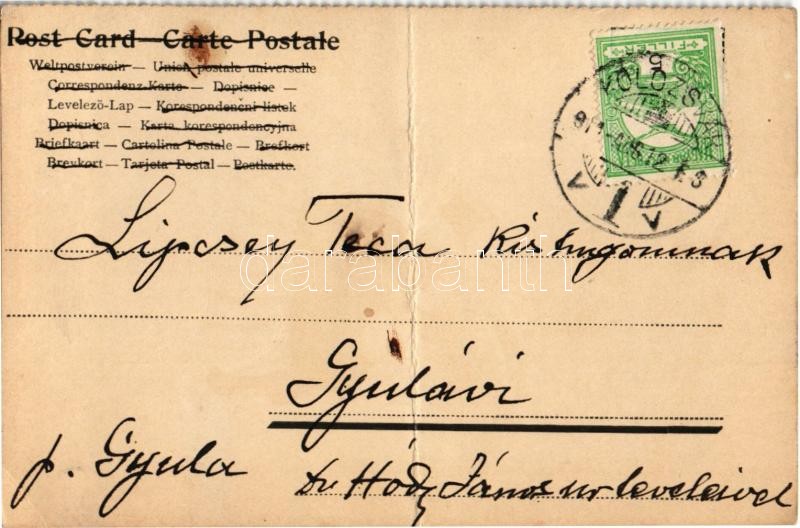 Post Card — Carte Postale
Weltpostverein — Union postale universelle
Correspondenz-Karte — Dopisnice —
Levelező-Lap — Korespondenčni listek
Dopisnica — Karta korespondencyjna
Briefkaart — Cartolina Postale — Brefkort
Brevkort — Tarjeta Postal — Postkarte.
FILLÉR
5
KOLOZSVÁR
Lipcsey Teca
Gyulávi
p. Gyula
Dr Hódy János úr levelével
darabanth